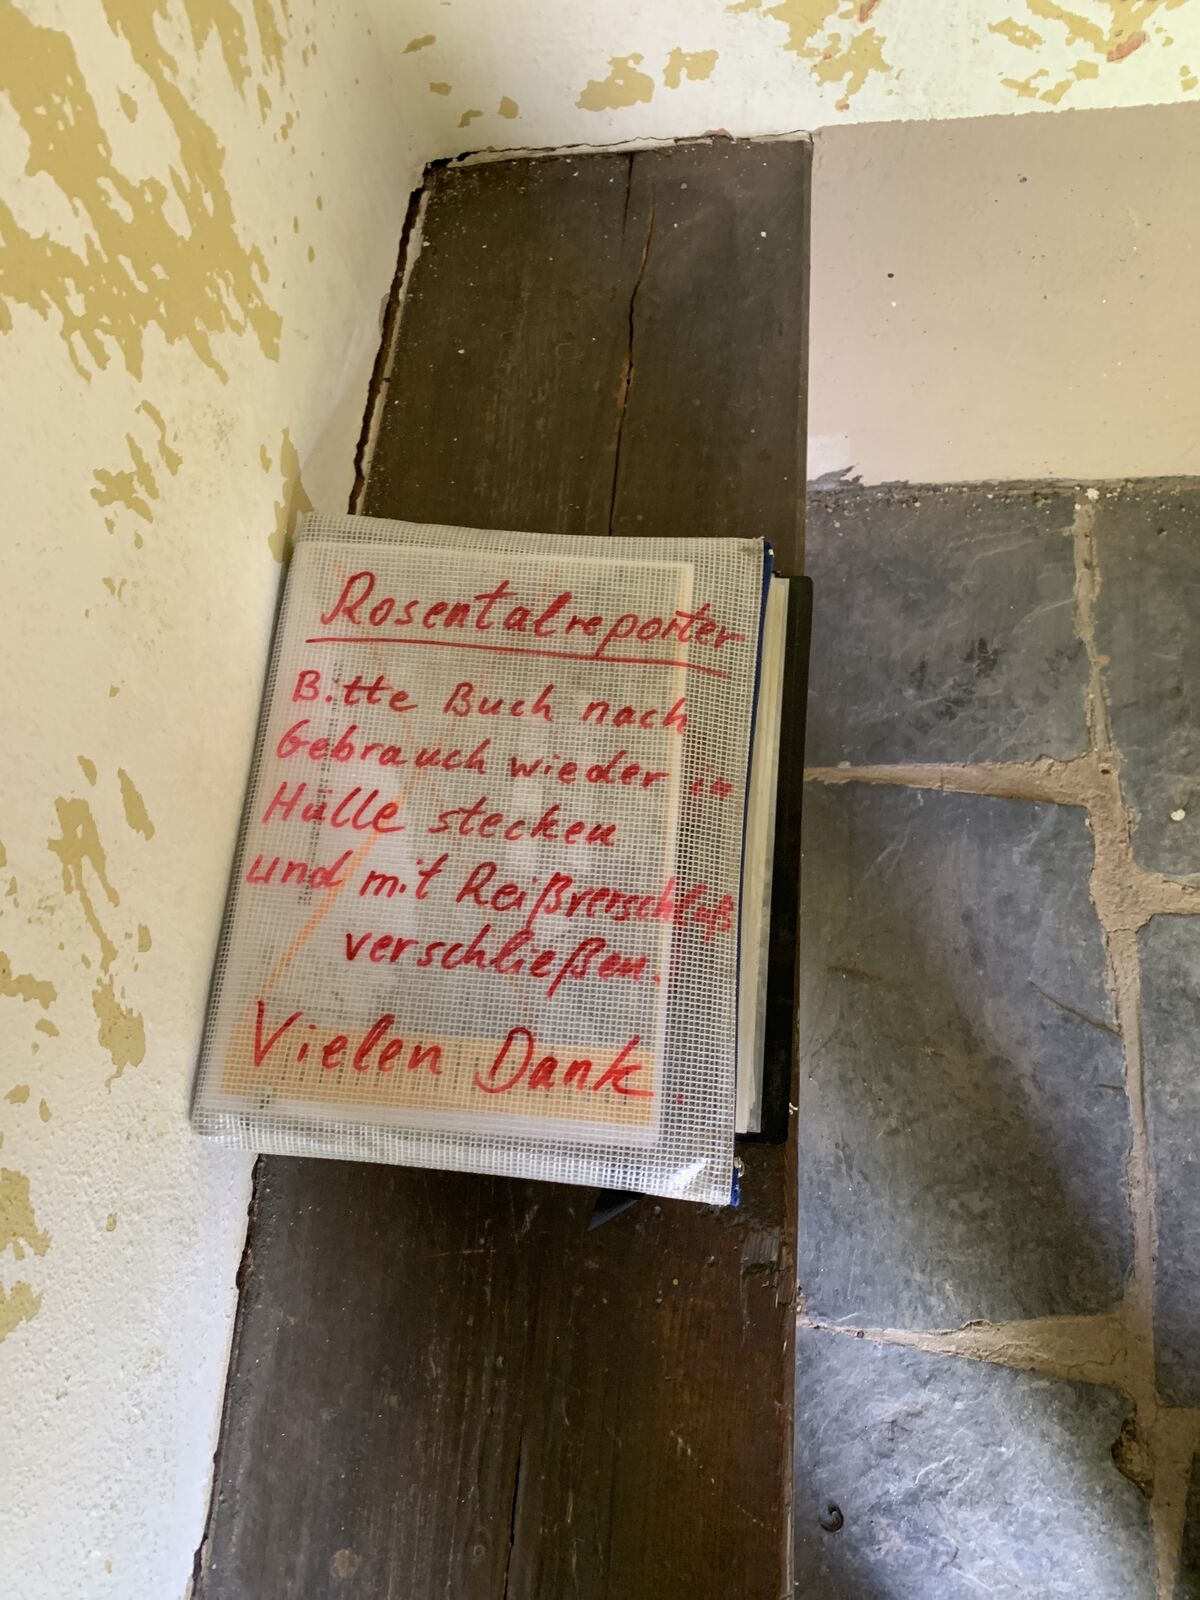 Rosentalreporter
Bitte Buch nach
Gebrauch wieder in
Hülle stecken
und mit Reißverschluß
verschließen.
Vielen Dank.